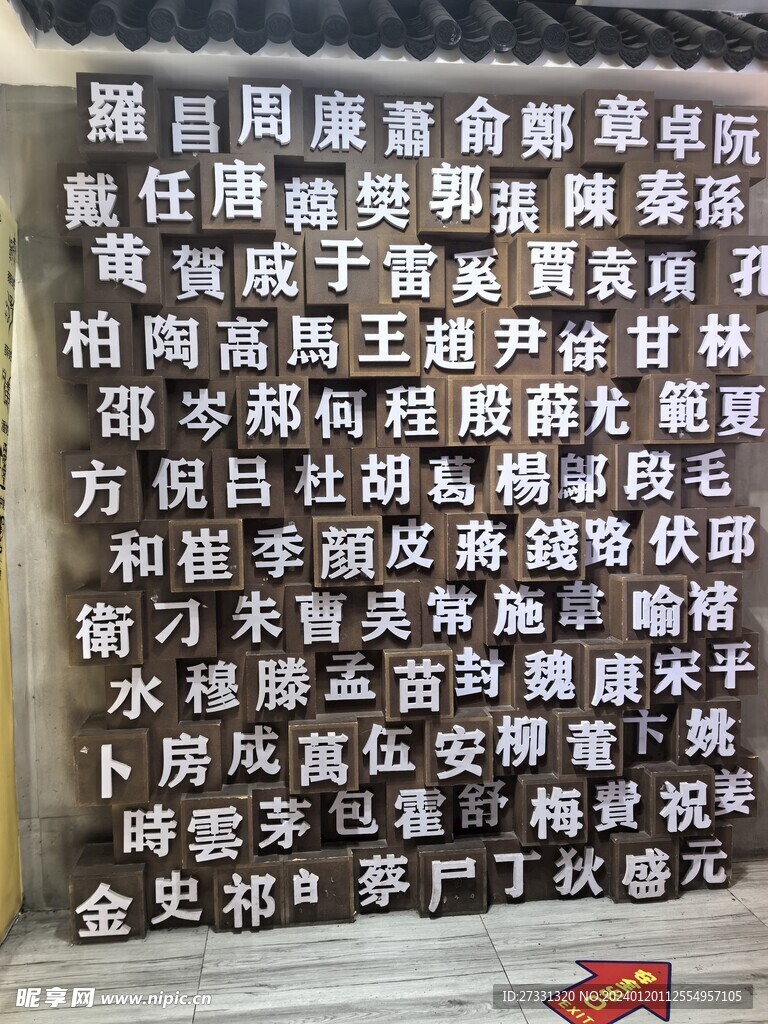 羅昌周廉蕭俞鄭章卓阮
戴任唐韓樊郭張陳秦孫
黄賀戚于雷奚賈袁項孔
柏陶高馬王趙尹徐甘林
邵岑郝何程殷薛尤範夏
方倪吕杜胡葛楊鄔段毛
和崔季顔皮蔣錢路伏邱
衛刁朱曹吴常施韋喻褚
水穆滕孟苗封魏康宋平
卜房成萬伍安柳董卞姚
時雲茅包霍舒梅費祝姜
金史祁白蔡尸丁狄盛元
EXIT
昵享网 www.nipic.cn
ID:27331320 NO.20240120112554957105